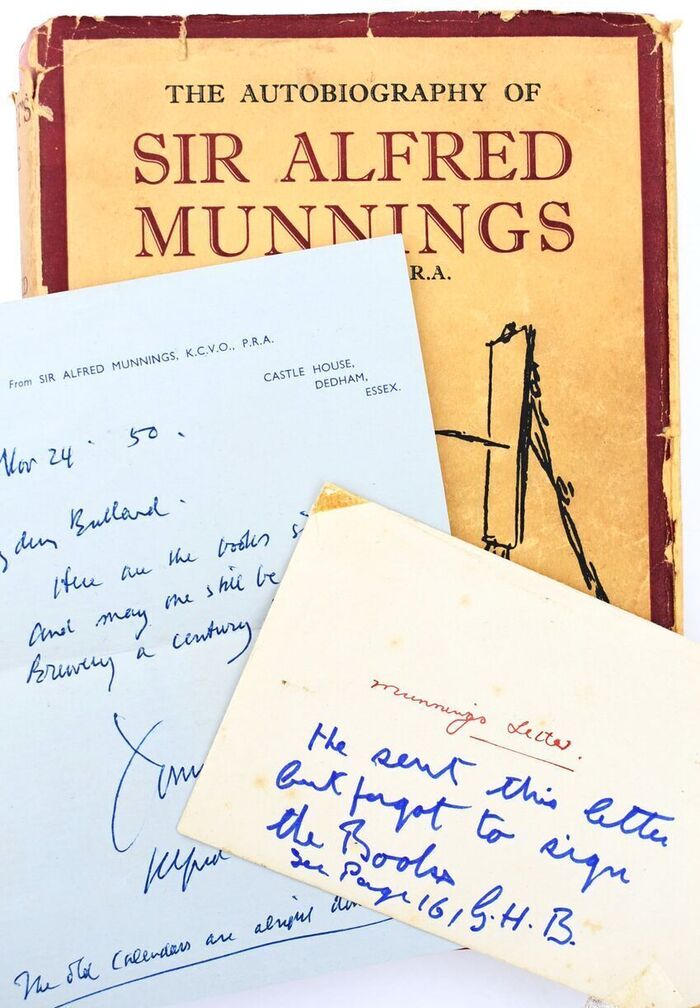 THE AUTOBIOGRAPHY OF
SIR ALFRED
MUNNINGS
R.A.
From SIR ALFRED MUNNINGS, K.C.V.O., P.R.A.
CASTLE HOUSE,
DEDHAM,
ESSEX.
Nov 24 . 50 .
Bullard .
Here are the books
And may one still be
Brewery a century
Alfred
The old Calendars are
Munnings Letter.
He sent this letter
but forgot to sign
the Books
See Page 161 G.H.B.